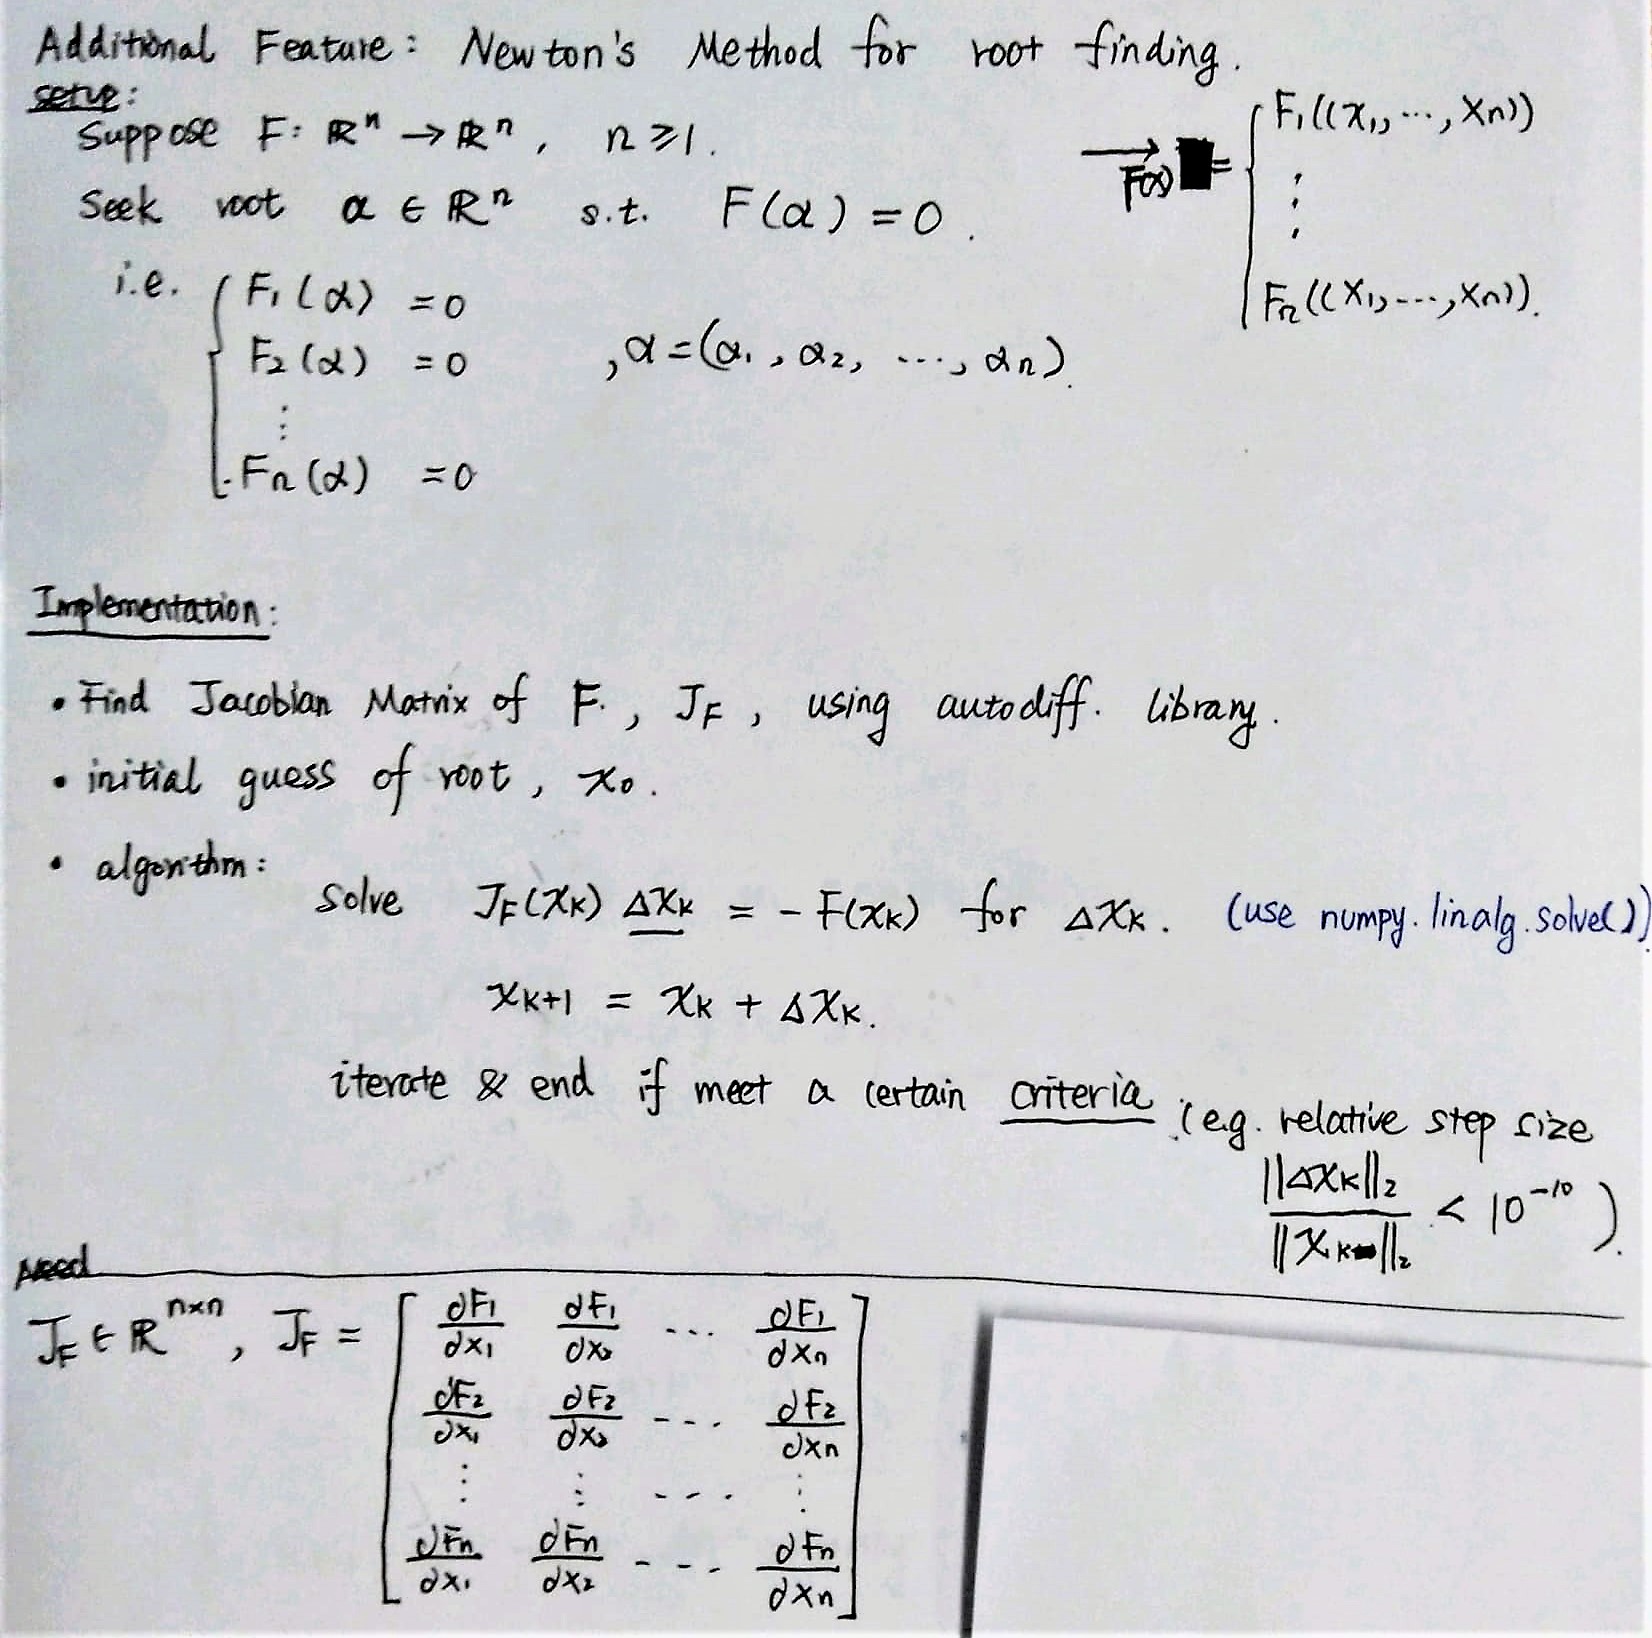 Additional Feature: Newton's Method for root finding.
setup:
Suppose F: ℝⁿ → ℝⁿ, n ≥ 1.
Seek root α ∈ ℝⁿ s.t. F(α) = 0.
i.e. { F₁(α) = 0
F₂(α) = 0 , α = (α₁, α₂, ..., αn).
⋮
Fn(α) = 0
F(x) = { F₁((x₁, ..., xn))
⋮
Fn((x₁, ..., xn)).
Implementation:
• Find Jacobian Matrix of F., J_F, using autodiff. library.
• initial guess of root, x₀.
• algorithm:
Solve J_F(x_K) Δx_K = - F(x_K) for Δx_K. (use numpy.linalg.solve())
x_{K+1} = x_K + Δx_K.
iterate & end if meet a certain criteria (e.g. relative step size
||Δx_K||₂ / ||x_K||₂ < 10⁻¹⁰).
Need
J_F ∈ ℝ^{n×n}, J_F = [ ∂F₁/∂x₁ ∂F₁/∂x₂ ... ∂F₁/∂xn
∂F₂/∂x₁ ∂F₂/∂x₂ ... ∂F₂/∂xn
⋮ ⋮ ... ⋮
∂Fn/∂x₁ ∂Fn/∂x₂ ... ∂Fn/∂xn ]